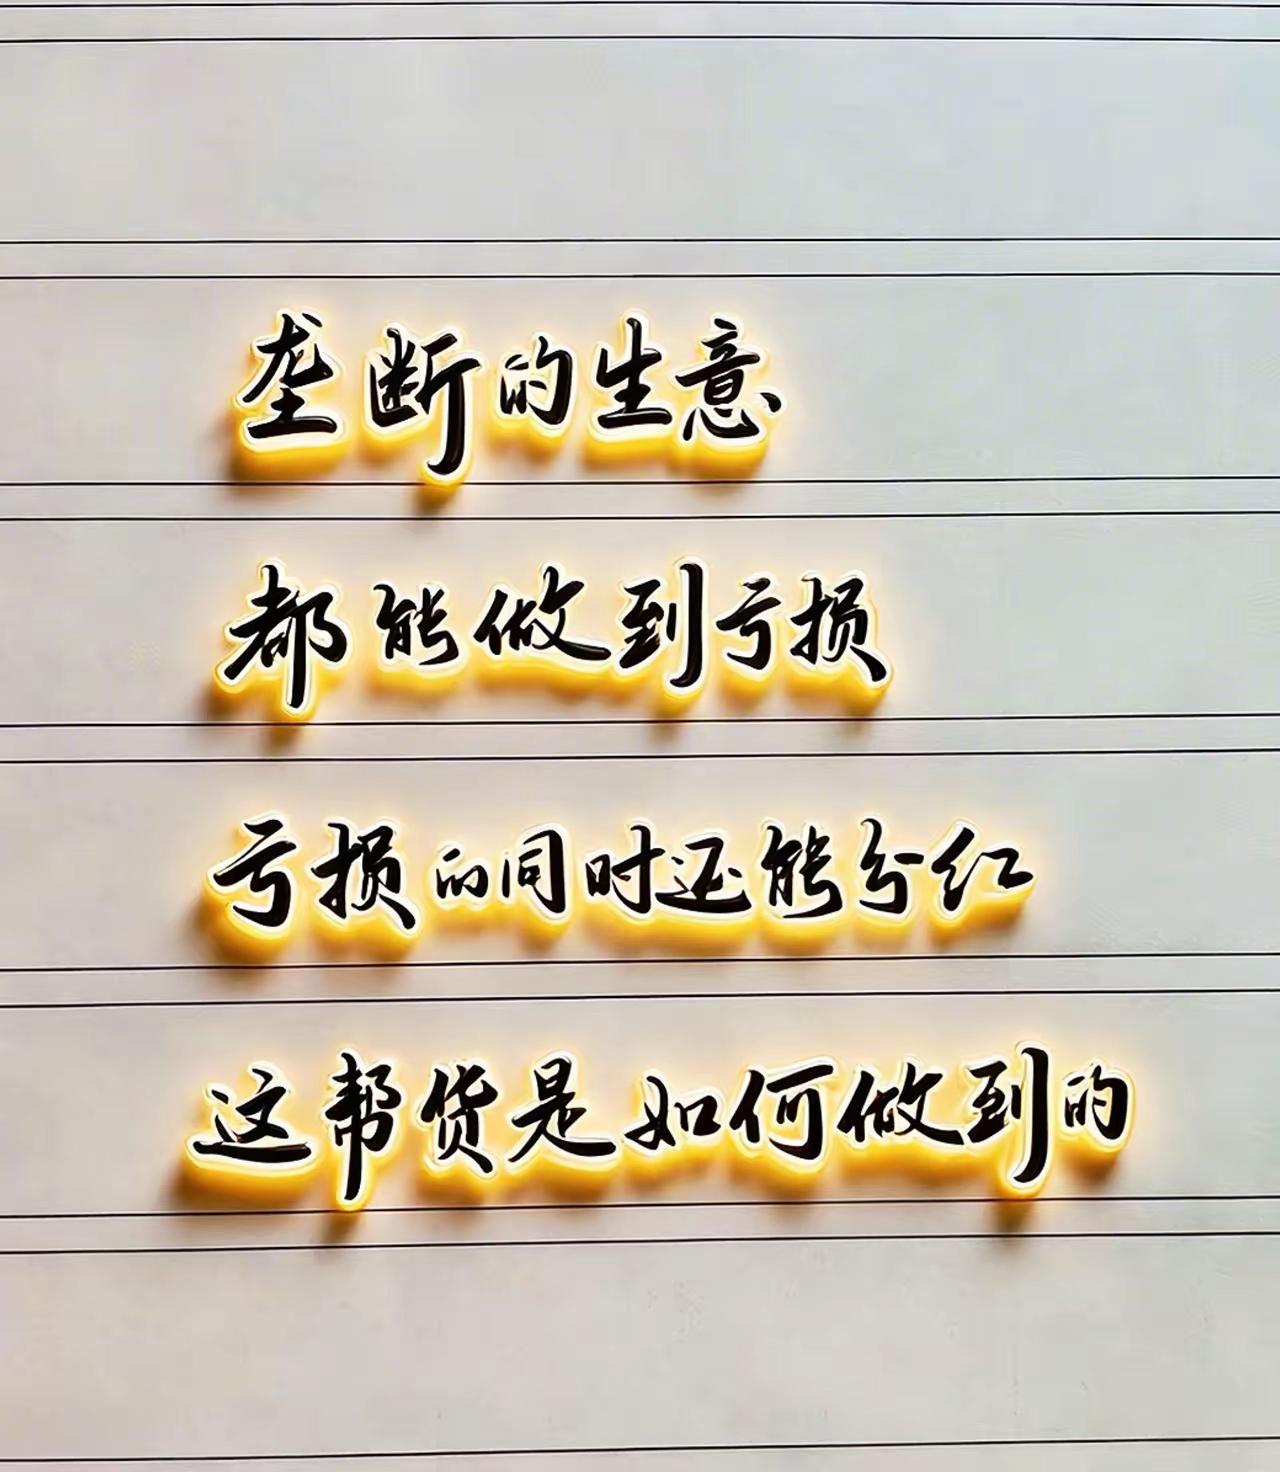 垄断的生意
都能做到亏损
亏损的同时还能分红
这帮货是如何做到的